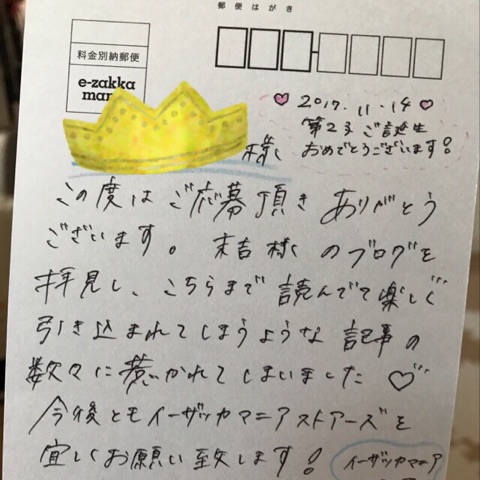 郵便はがき
料金別納郵便
e-zakka
man
様
♡ 2017.11.14 ♡
第2子ご誕生
おめでとうございます!
この度はご応募頂き ありがとう
ございます。 末吉様 のブログを
拝見し、こちらまで 読んでて楽しく
引き込まれてしまうような 記事の
数々に惹かれてしまいました ♡
今後ともイーザッカマニアストアーズを
宜しくお願い致します!
イーザッカマニア